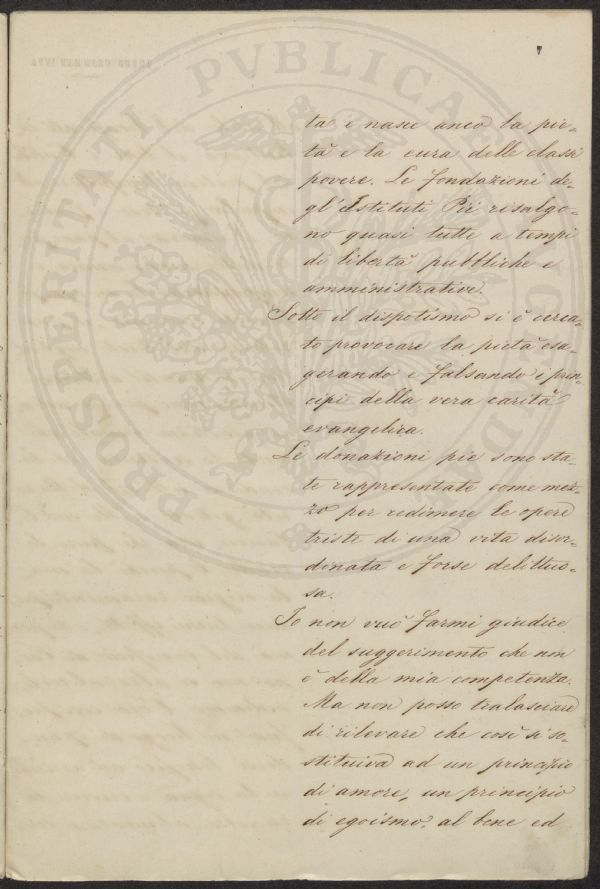 7
PROSPERITATI PVBLICAE AVGENDAE
ta e nasce anco la pie-
tà e la cura delle classi
povere. Le fondazioni de-
gl'Istituti Pii risalgo-
no quasi tutte a tempi
di libertà pubbliche e
amministrative.
Sotto il dispotismo si è cerca-
to provocare la pietà esa-
gerando e falsando i prin-
cipi della vera carità
evangelica.
Le donazioni pie sono sta-
te rappresentate come mez-
zo per redimere le opere
triste di una vita disor-
dinata e forse delittuo-
sa.
Io non vuò farmi giudice
del suggerimento che non
è della mia competenza.
Ma non posso tralasciare
di rilevare che così si so-
stituiva ad un principio
di amore, un principio
di egoismo, al bene ed